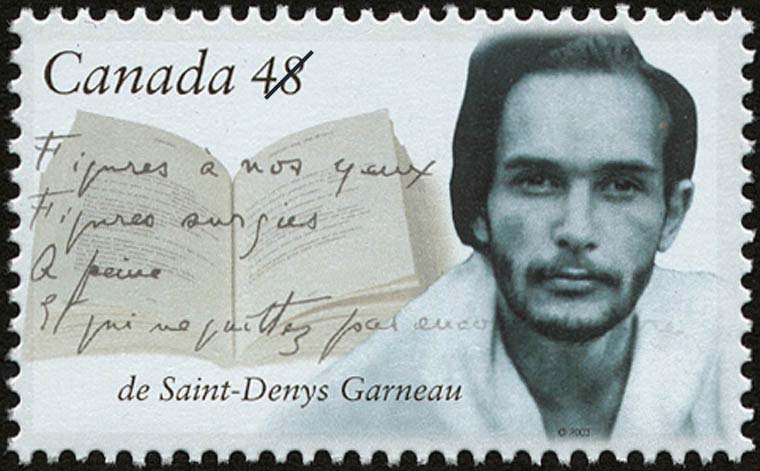 Canada 48
Figures à nos yeux
Figures surgies
A peine
Et qui ne quittez pas encore
de Saint-Denys Garneau
© 2003